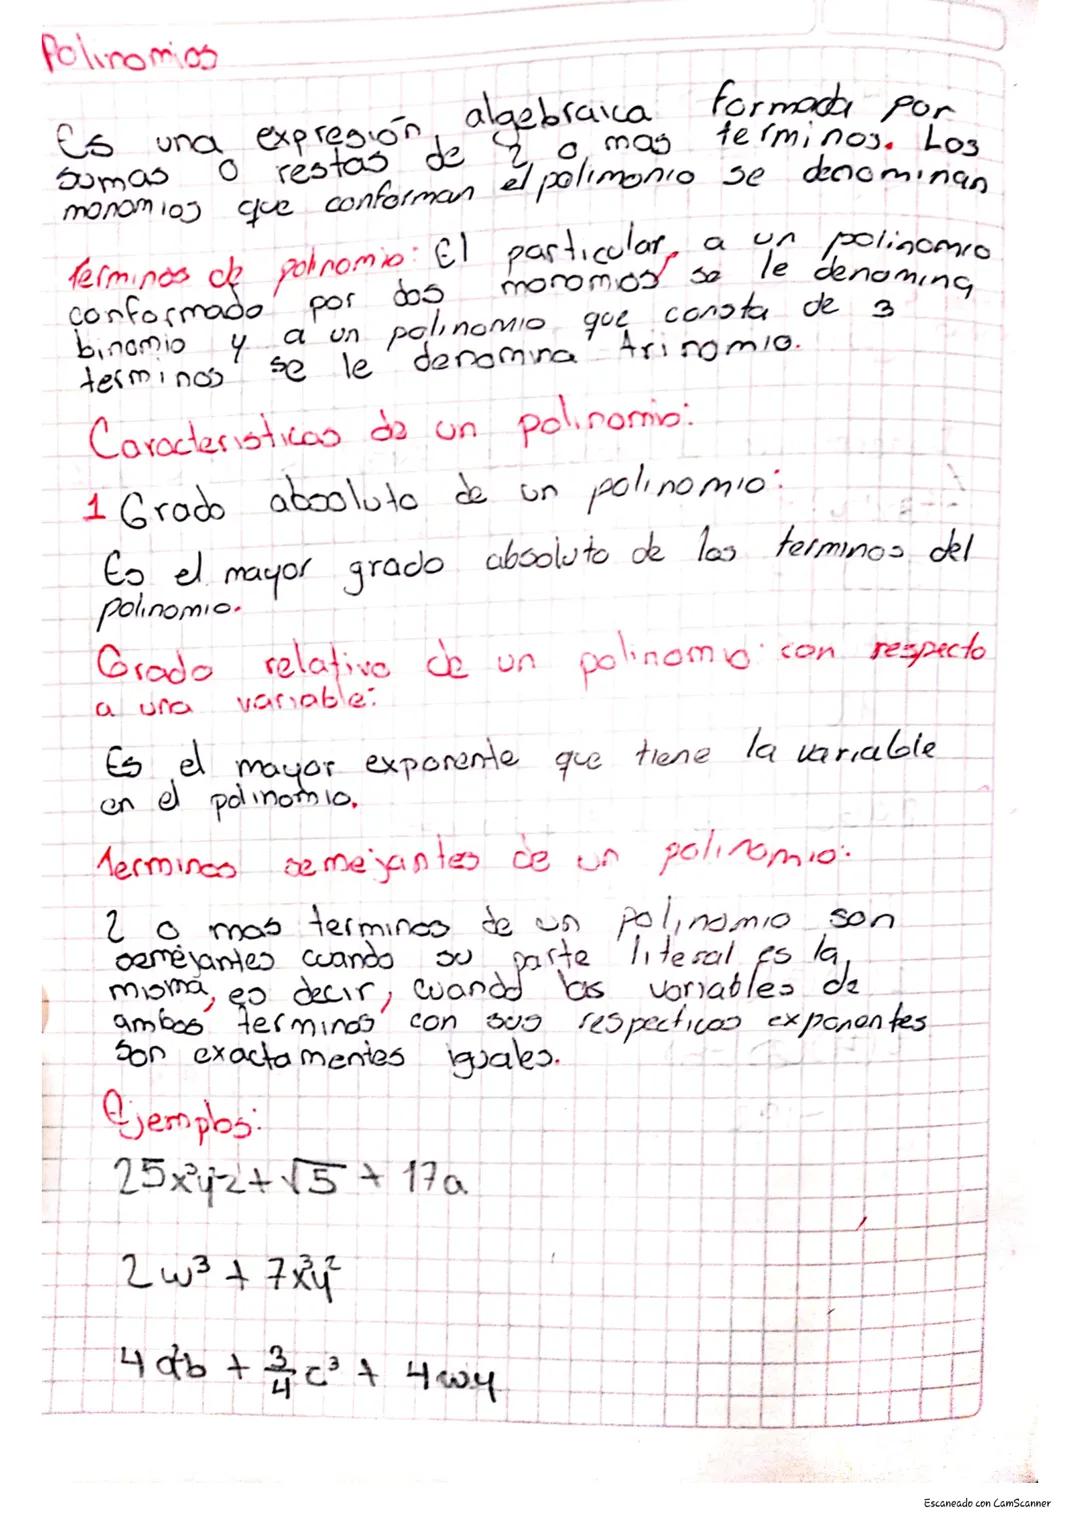 Polinomios
Es una expresión algebraica formada por
sumas o restas de 2 o mas terminos. Los
monomios que conforman el polimonio se denominan
terminos de polnomio: El particular, a un polinomio
conformado por dos monomios se le denomina
binomio y a un polinomio que consta de 3
terminos se le denomina trinomio.
Caracteristicas de un polinomio:
1 Grado absoluto de un polinomio:
Es el mayor grado absoluto de los terminos del
polinomio.
Grado relativo de un polinomio con respecto
a una variable:
Es el mayor exponente que tiene la variable
en el polinomio.
Terminos semejantes de un polinomio:
2 o mas terminos de un polinomio son
semejantes cuando su parte literal es la
misma, es decir, cuando las variables de
ambos terminos con sus respecticas exponentes
son exactamentes iguales.
Ejemplos:
25x³y²z + √5 + 17a
2w³ + 7x³y²
4a²b + 3/4 c³ + 4wy
Escaneado con CamScanner